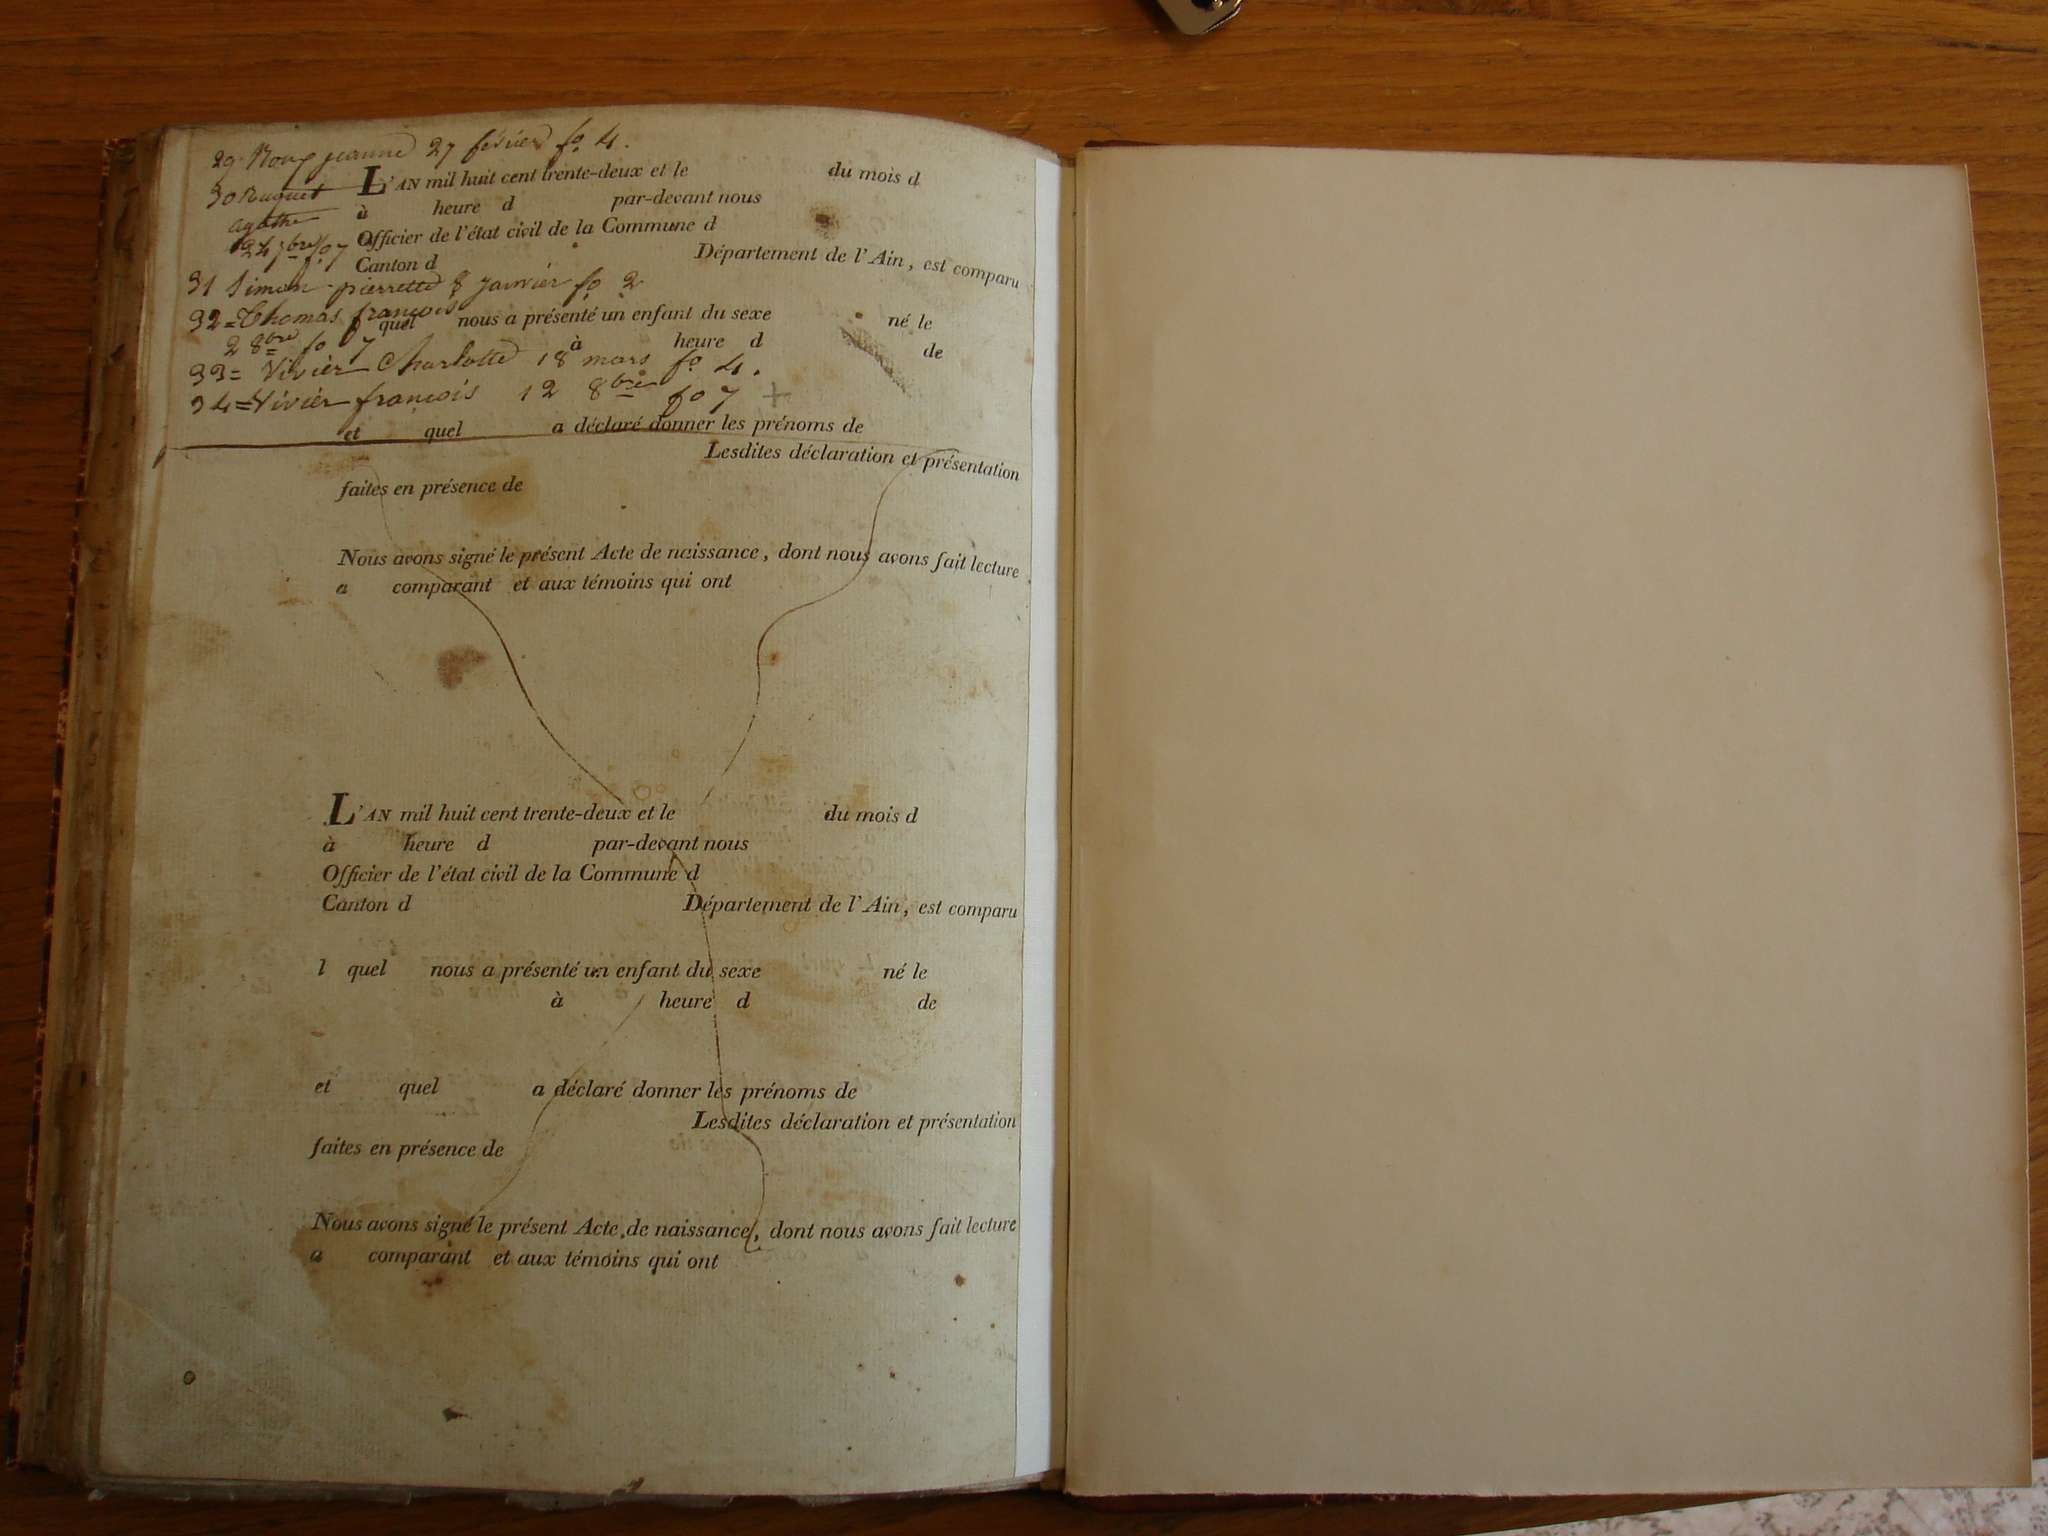 29 Roux jeanne 27 février fo 4.
L'AN mil huit cent trente-deux et le du mois d
30 Ruguet
à heure d par-devant nous
agathe
Officier de l'état civil de la Commune d
24 7bre fo 7
Canton d Département de l'Ain, est comparu
31 Simon pierrette 8 janvier fo 2
32=Thomas françois
quel nous a présenté un enfant du sexe né le
2 8bre fo 7
à heure d de
33= Vivier Charlotte 18 mars fo 4.
34=Vivier françois 12 8bre fo 7 +
et quel a déclaré donner les prénoms de
Lesdites déclaration et présentation
faites en présence de
Nous avons signé le présent Acte de naissance, dont nous avons fait lecture
a comparant et aux témoins qui ont
L'AN mil huit cent trente-deux et le du mois d
à heure d par-devant nous
Officier de l'état civil de la Commune d
Canton d Département de l'Ain, est comparu
l quel nous a présenté un enfant du sexe né le
à heure d de
et quel a déclaré donner les prénoms de
Lesdites déclaration et présentation
faites en présence de
Nous avons signé le présent Acte de naissance, dont nous avons fait lecture
a comparant et aux témoins qui ont